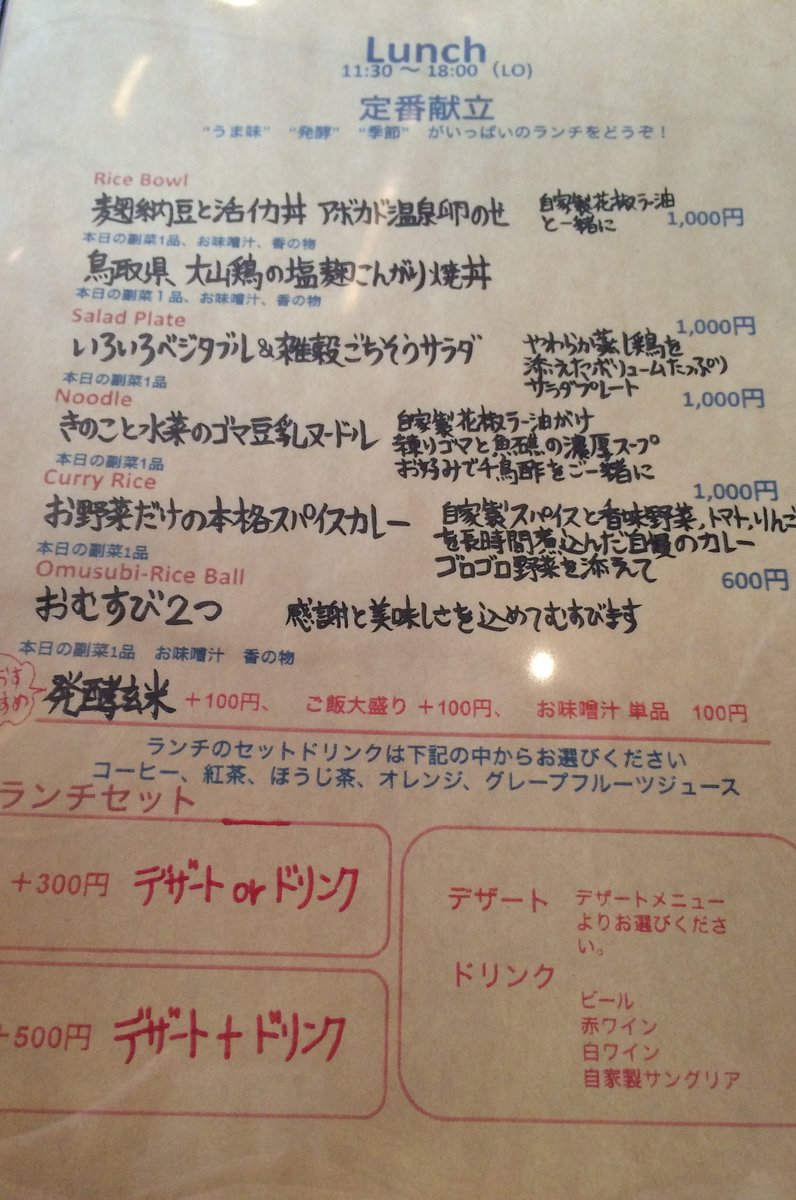 Lunch
11:30 〜 18:00（LO)
定番献立
"うま味" "発酵" "季節" がいっぱいのランチをどうぞ！
Rice Bowl
麹納豆と活イカ丼 アボカド温泉卵のせ
自家製花椒ラー油
と一緒に
1,000円
本日の副菜1品、お味噌汁、香の物
鳥取県 大山鶏の塩麹こんがり焼丼
本日の副菜1品、お味噌汁、香の物
1,000円
Salad Plate
いろいろベジタブル&雑穀ごちそうサラダ
やわらか蒸し鶏を
添えたボリュームたっぷり
サラダプレート
本日の副菜1品
1,000円
Noodle
きのこと水菜のゴマ豆乳ヌードル
自家製花椒ラー油がけ
練りゴマと魚醤の濃厚スープ
お好みで千鳥酢をご一緒に
本日の副菜1品
1,000円
Curry Rice
お野菜だけの本格スパイスカレー
自家製スパイスと香味野菜、トマト、りんご
を長時間煮込んだ自慢のカレー
ゴロゴロ野菜を添えて
本日の副菜1品
600円
Omusubi-Rice Ball
おむすび2つ
感謝と美味しさを込めてむすびます
本日の副菜1品 お味噌汁 香の物
おすすめ
発酵玄米 +100円、 ご飯大盛り +100円、 お味噌汁 単品 100円
ランチのセットドリンクは下記の中からお選びください
コーヒー、紅茶、ほうじ茶、オレンジ、グレープフルーツジュース
ランチセット
+300円 デザート or ドリンク
+500円 デザート + ドリンク
デザート
デザートメニュー
よりお選びくださ
い。
ドリンク
ビール
赤ワイン
白ワイン
自家製サングリア